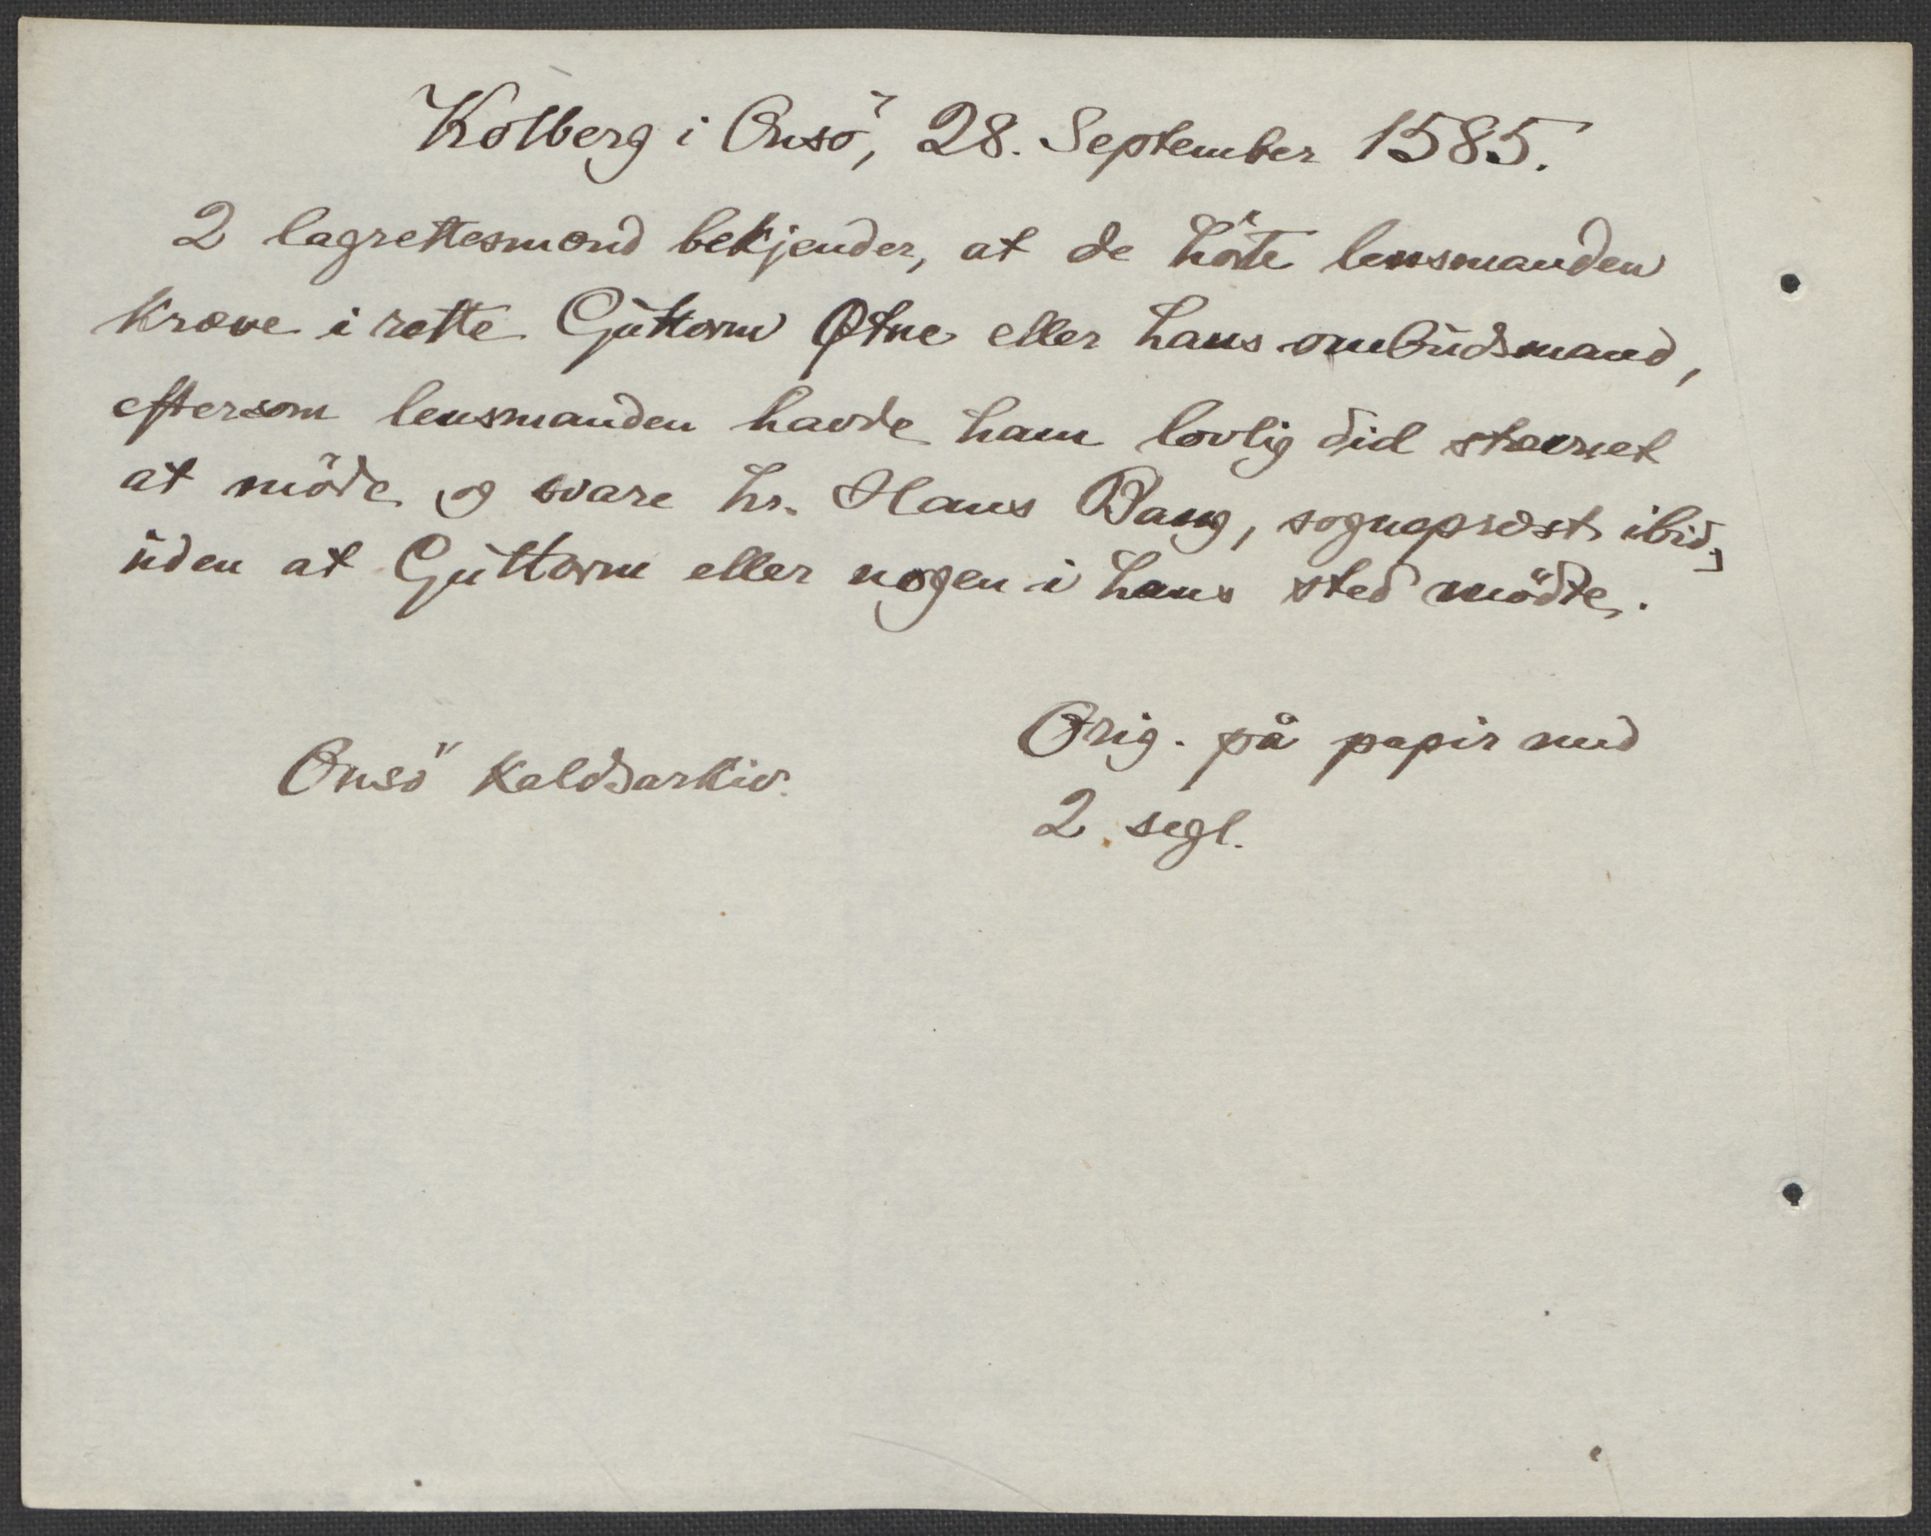 Kolberg i Onsö, 28. September 1585.
2 lagrettesmænd bekjender, at de hörte lensmanden
kræve i rette Guttorm Øtne eller hans ombudsmand,
eftersom lensmanden havde ham lovlig did stævnet
at möde og svare hr. Hans Bang, sogneprest ibid.,
uden at Guttorm eller nogen i hans sted mödte.
Orig. på papir med
Onsö kaldsarkiv.
2 segl.